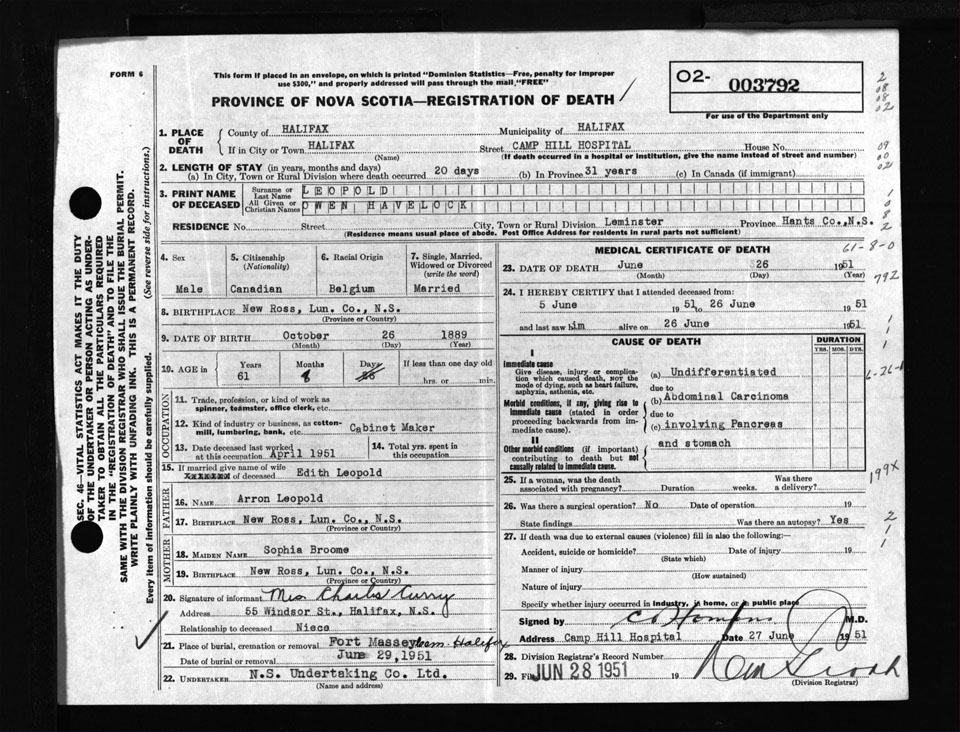 FORM 6
This form if placed in an envelope, on which is printed "Dominion Statistics—Free, penalty for improper
use $300," and properly addressed will pass through the mail "FREE"
PROVINCE OF NOVA SCOTIA—REGISTRATION OF DEATH
O2- 003792
For use of the Department only
SEC. 46—VITAL STATISTICS ACT MAKES IT THE DUTY
OF THE UNDERTAKER OR PERSON ACTING AS UNDER-
TAKER TO OBTAIN ALL THE PARTICULARS REQUIRED
IN THE "REGISTRATION OF DEATH" AND TO FILE THE
SAME WITH THE DIVISION REGISTRAR WHO SHALL ISSUE THE BURIAL PERMIT.
WRITE PLAINLY WITH UNFADING INK. THIS IS A PERMANENT RECORD.
Every item of information should be carefully supplied. (See reverse side for instructions.)
1. PLACE OF DEATH
County of HALIFAX Municipality of HALIFAX
If in City or Town HALIFAX Street CAMP HILL HOSPITAL House No.
(Name) (If death occurred in a hospital or institution, give the name instead of street and number)
2. LENGTH OF STAY (in years, months and days)
(a) In City, Town or Rural Division where death occurred 20 days (b) In Province 31 years (c) In Canada (if immigrant)
3. PRINT NAME OF DECEASED
Surname or Last Name LEOPOLD
All Given or Christian Names OWEN HAVELOCK
RESIDENCE No. Street City, Town or Rural Division Leminster Province Hants Co., N.S.
(Residence means usual place of abode. Post Office Address for residents in rural parts not sufficient)
4. Sex
Male
5. Citizenship (Nationality)
Canadian
6. Racial Origin
Belgium
7. Single, Married, Widowed or Divorced (write the word)
Married
8. BIRTHPLACE New Ross, Lun. Co., N.S.
(Province or Country)
9. DATE OF BIRTH October 26 1889
(Month) (Day) (Year)
10. AGE in Years 61 Months 8 Days If less than one day old hrs. or min.
OCCUPATION
11. Trade, profession, or kind of work as
spinner, teamster, office clerk, etc.
12. Kind of industry or business, as cotton-
mill, lumbering, bank, etc. Cabinet Maker
13. Date deceased last worked
at this occupation April 1951
14. Total yrs. spent in
this occupation
15. If married give name of wife
xxxxxxx of deceased Edith Leopold
FATHER
16. NAME Arron Leopold
17. BIRTHPLACE New Ross, Lun. Co., N.S.
(Province or Country)
MOTHER
18. MAIDEN NAME Sophia Broome
19. BIRTHPLACE New Ross, Lun. Co., N.S.
(Province or Country)
20. Signature of informant Mrs Charles Curry
Address 55 Windsor St., Halifax, N.S.
Relationship to deceased Niece
21. Place of burial, cremation or removal Fort Massey Cem. Halifax
Date of burial or removal June 29, 1951
22. UNDERTAKER N.S. Undertaking Co. Ltd.
(Name and address)
MEDICAL CERTIFICATE OF DEATH
61-8-0
23. DATE OF DEATH June 26 1951
(Month) (Day) (Year)
792
24. I HEREBY CERTIFY that I attended deceased from:
5 June 1951 to 26 June 1951
and last saw him alive on 26 June 1951
CAUSE OF DEATH
DURATION
YRS. MOS. DYS.
I
Immediate cause
Give disease, injury or complica-
tion which caused death, NOT the
mode of dying, such as heart failure,
asphyxia, asthenia, etc.
(a) Undifferentiated
due to
Morbid conditions, if any, giving rise to
immediate cause (stated in order
proceeding backwards from im-
mediate cause).
(b) Abdominal Carcinoma
due to
(c) involving Pancreas
and stomach
II
Other morbid conditions (if important)
contributing to death but not
causally related to immediate cause.
199X
25. If a woman, was the death
associated with pregnancy? Duration weeks. Was there
a delivery?
26. Was there a surgical operation? No Date of operation 19
State findings Was there an autopsy? Yes
27. If death was due to external causes (violence) fill in also the following:
Accident, suicide or homicide? Date of injury 19
(State which)
Manner of injury
(How sustained)
Nature of injury
Specify whether injury occurred in industry, in home, or in public place
Signed by M.D.
Address Camp Hill Hospital Date 27 June 1951
28. Division Registrar's Record Number
29. Filed JUN 28 1951 19
(Division Registrar)